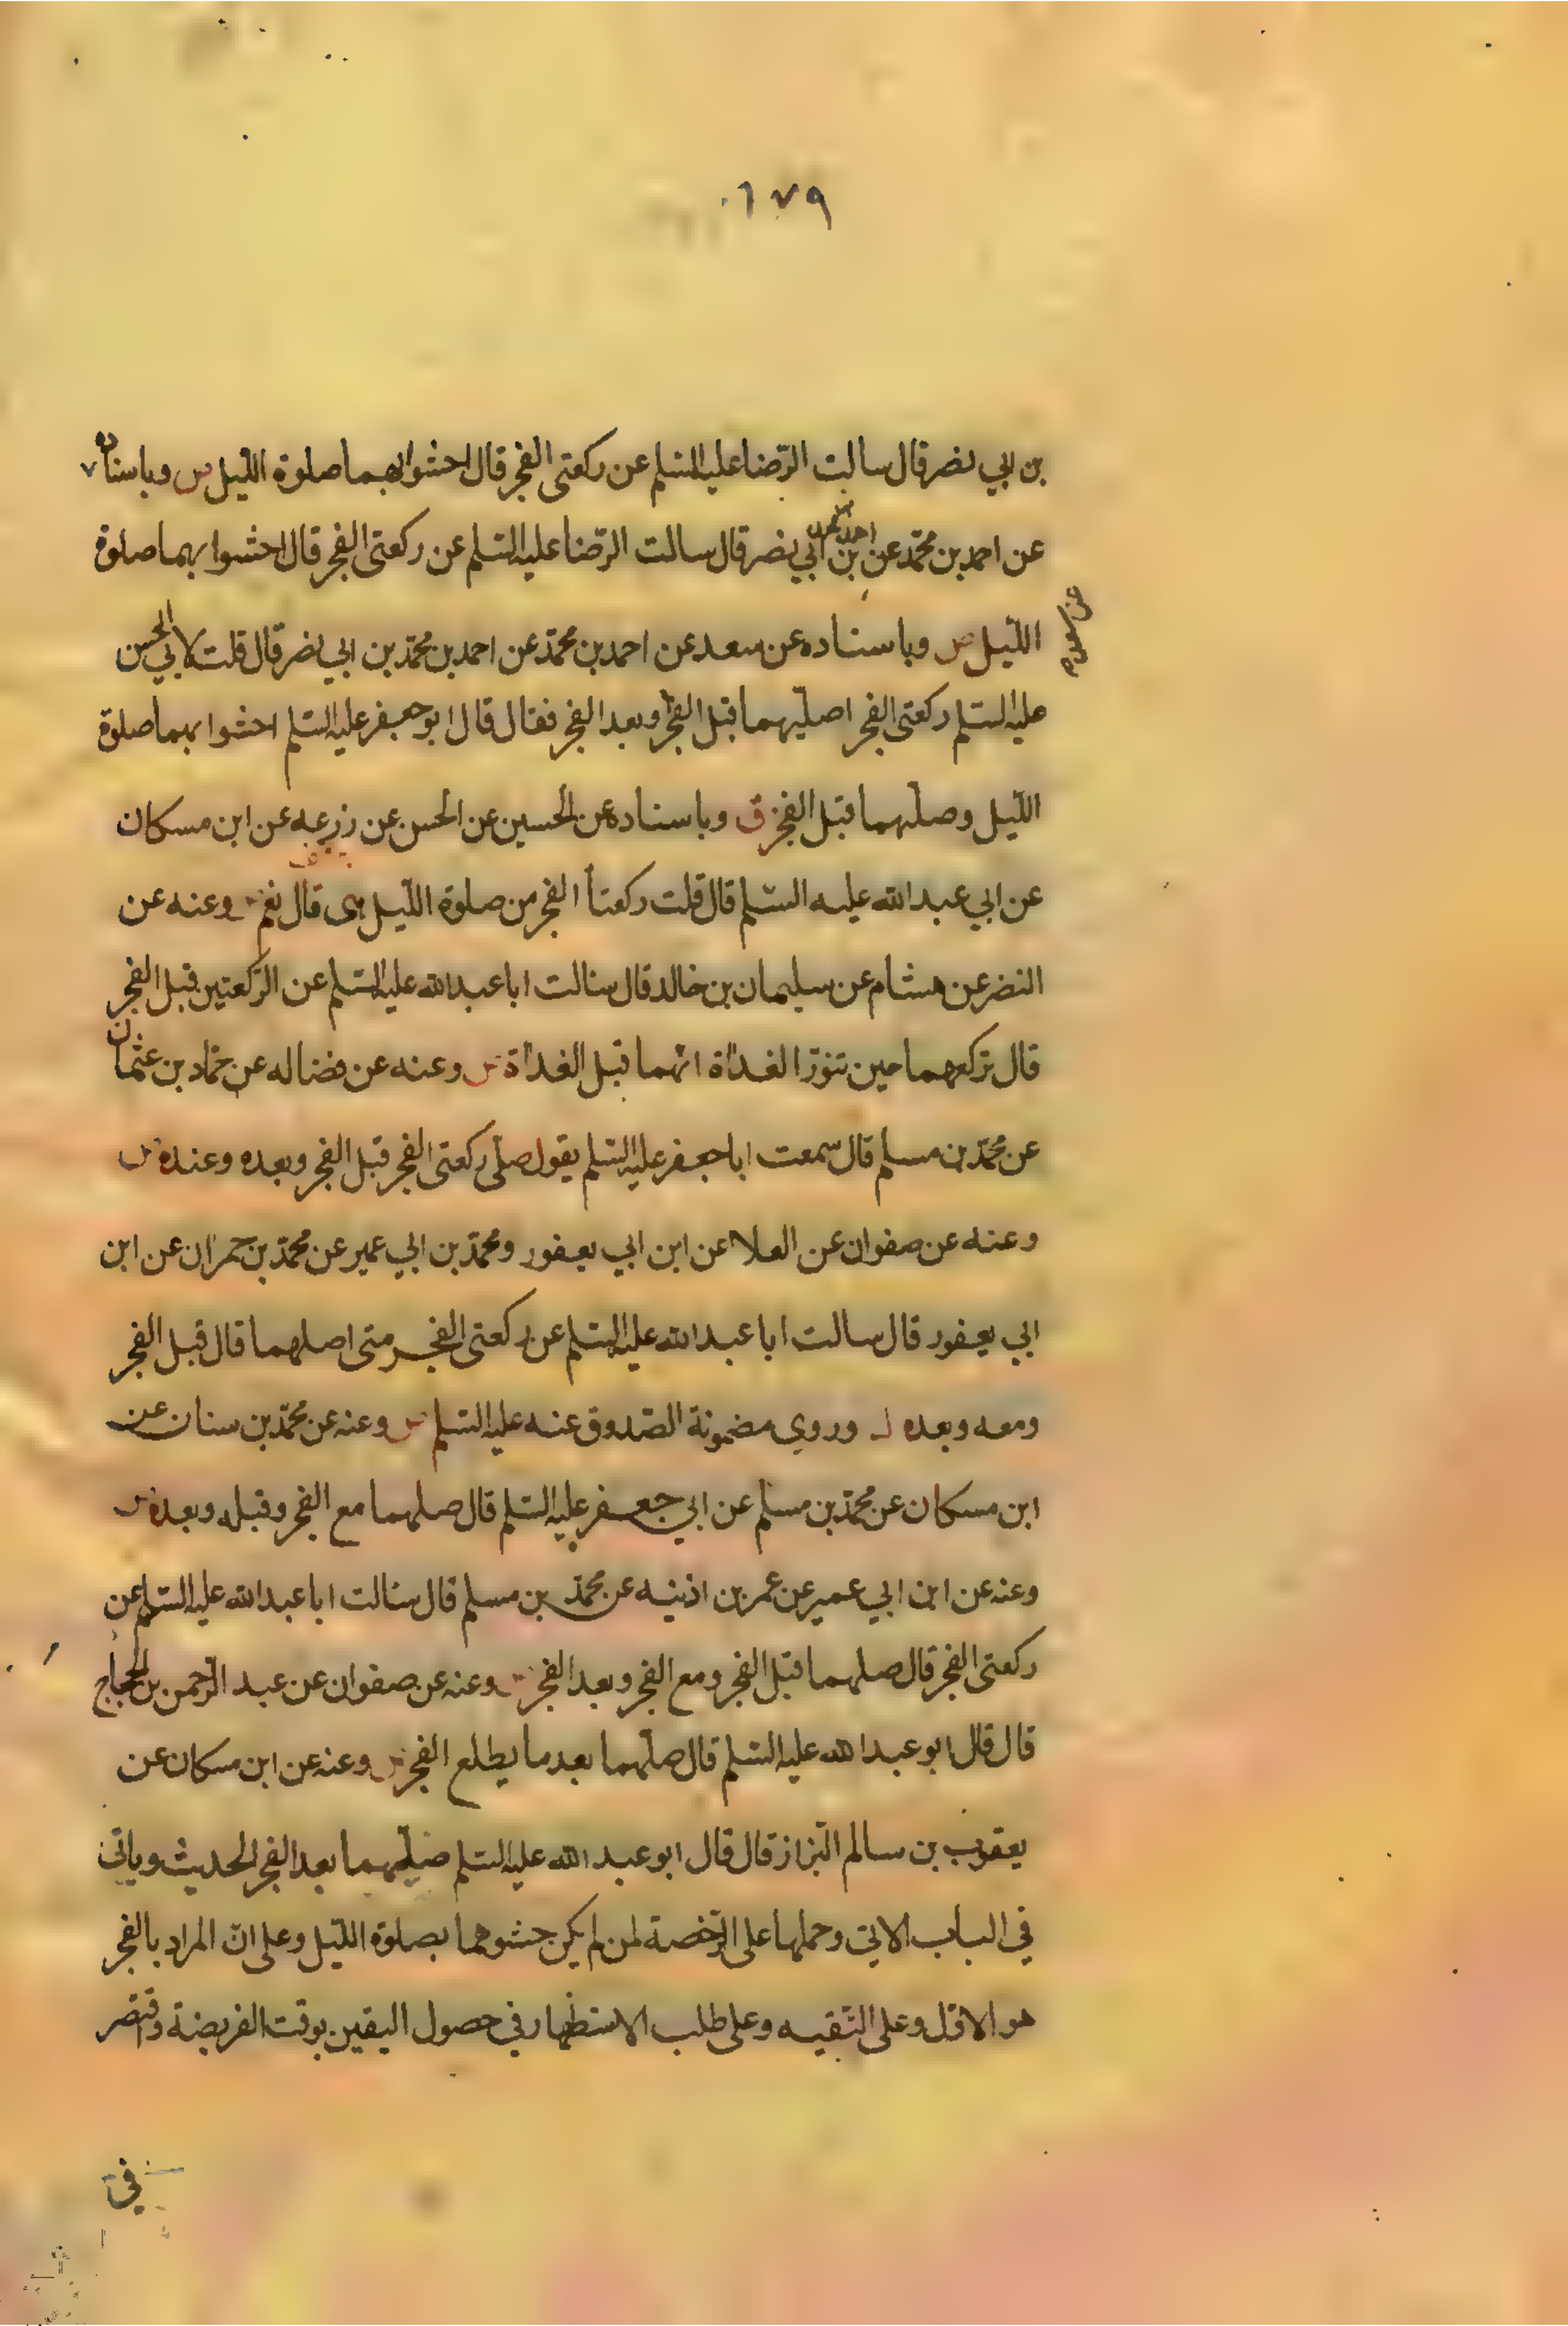 ١٧٩
بن ابي نصر قال سالت الرّضا عليه السّلم عن ركعتي الفجر قال احشوا بهما صلوة اللّيل س وباسناده
عن احمد بن محمّد عن احمد بن محمد بن ابي نصر قال سالت الرّضا عليه السّلم عن ركعتي الفجر قال احشوا بهما صلوة
اللّيل ص وباسناده عن سعد عن احمد بن محمّد عن احمد بن محمّد بن ابي نصر قال قلت لابي الحسن
عليه السّلم ركعتي الفجر اصلّيهما قبل الفجر او بعد الفجر فقال قال ابو جعفر عليه السّلم احشوا بهما صلوة
اللّيل وصلّهما قبل الفجر ق وباسناده عن الحسين عن الحسن عن زرعه عن ابن مسكان
عن ابي عبد الله عليه السّلم قال قلت ركعتا الفجر من صلوة اللّيل هي قال نعم وعنه عن
النضر عن هشام عن سليمان بن خالد قال سالت ابا عبد الله عليه السّلم عن الرّكعتين قبل الفجر
قال تركعهما حين تنوّر الغداة انّهما قبل الغداة س وعنه عن فضاله عن حمّاد بن عثمان
عن محمّد بن مسلم قال سمعت ابا جعفر عليه السّلم يقول صلّ ركعتي الفجر قبل الفجر وبعده وعنده س
وعنه عن صفوان عن العلا عن ابن ابي يعفور ومحمّد بن ابي عمير عن محمّد بن حمران عن ابن
ابي يعفور قال سالت ابا عبد الله عليه السّلم عن ركعتي الفجر متى اصلهما قال قبل الفجر
ومعه وبعده وروي مضمونة الصّدوق عنه عليه السّلم س وعنه عن محمّد بن سنان عن
ابن مسكان عن محمّد بن مسلم عن ابي جعفر عليه السّلم قال صلهما مع الفجر وقبله وبعده س
وعنه عن ابن ابي عمير عن عمر بن اذينه عن محمّد بن مسلم قال سالت ابا عبد الله عليه السّلم عن
ركعتي الفجر قال صلهما قبل الفجر ومع الفجر وبعد الفجر وعنه عن صفوان عن عبد الرّحمن بن الحجاج
قال قال ابو عبد الله عليه السّلم قال صلّهما بعد ما يطلع الفجر س وعنه عن ابن مسكان عن
يعقوب بن سالم البزّاز قال قال ابو عبد الله عليه السّلم صلّهما بعد الفجر الحديث وياتي
في الباب الاتي وحملها على الرّخصة لمن لم يكن حشوهما بصلوة اللّيل وعلى انّ المراد بالفجر
هو الاوّل وعلى التّقيه وعلى طلب الاستظهار في حصول اليقين بوقت الفريضة واقتصر
في